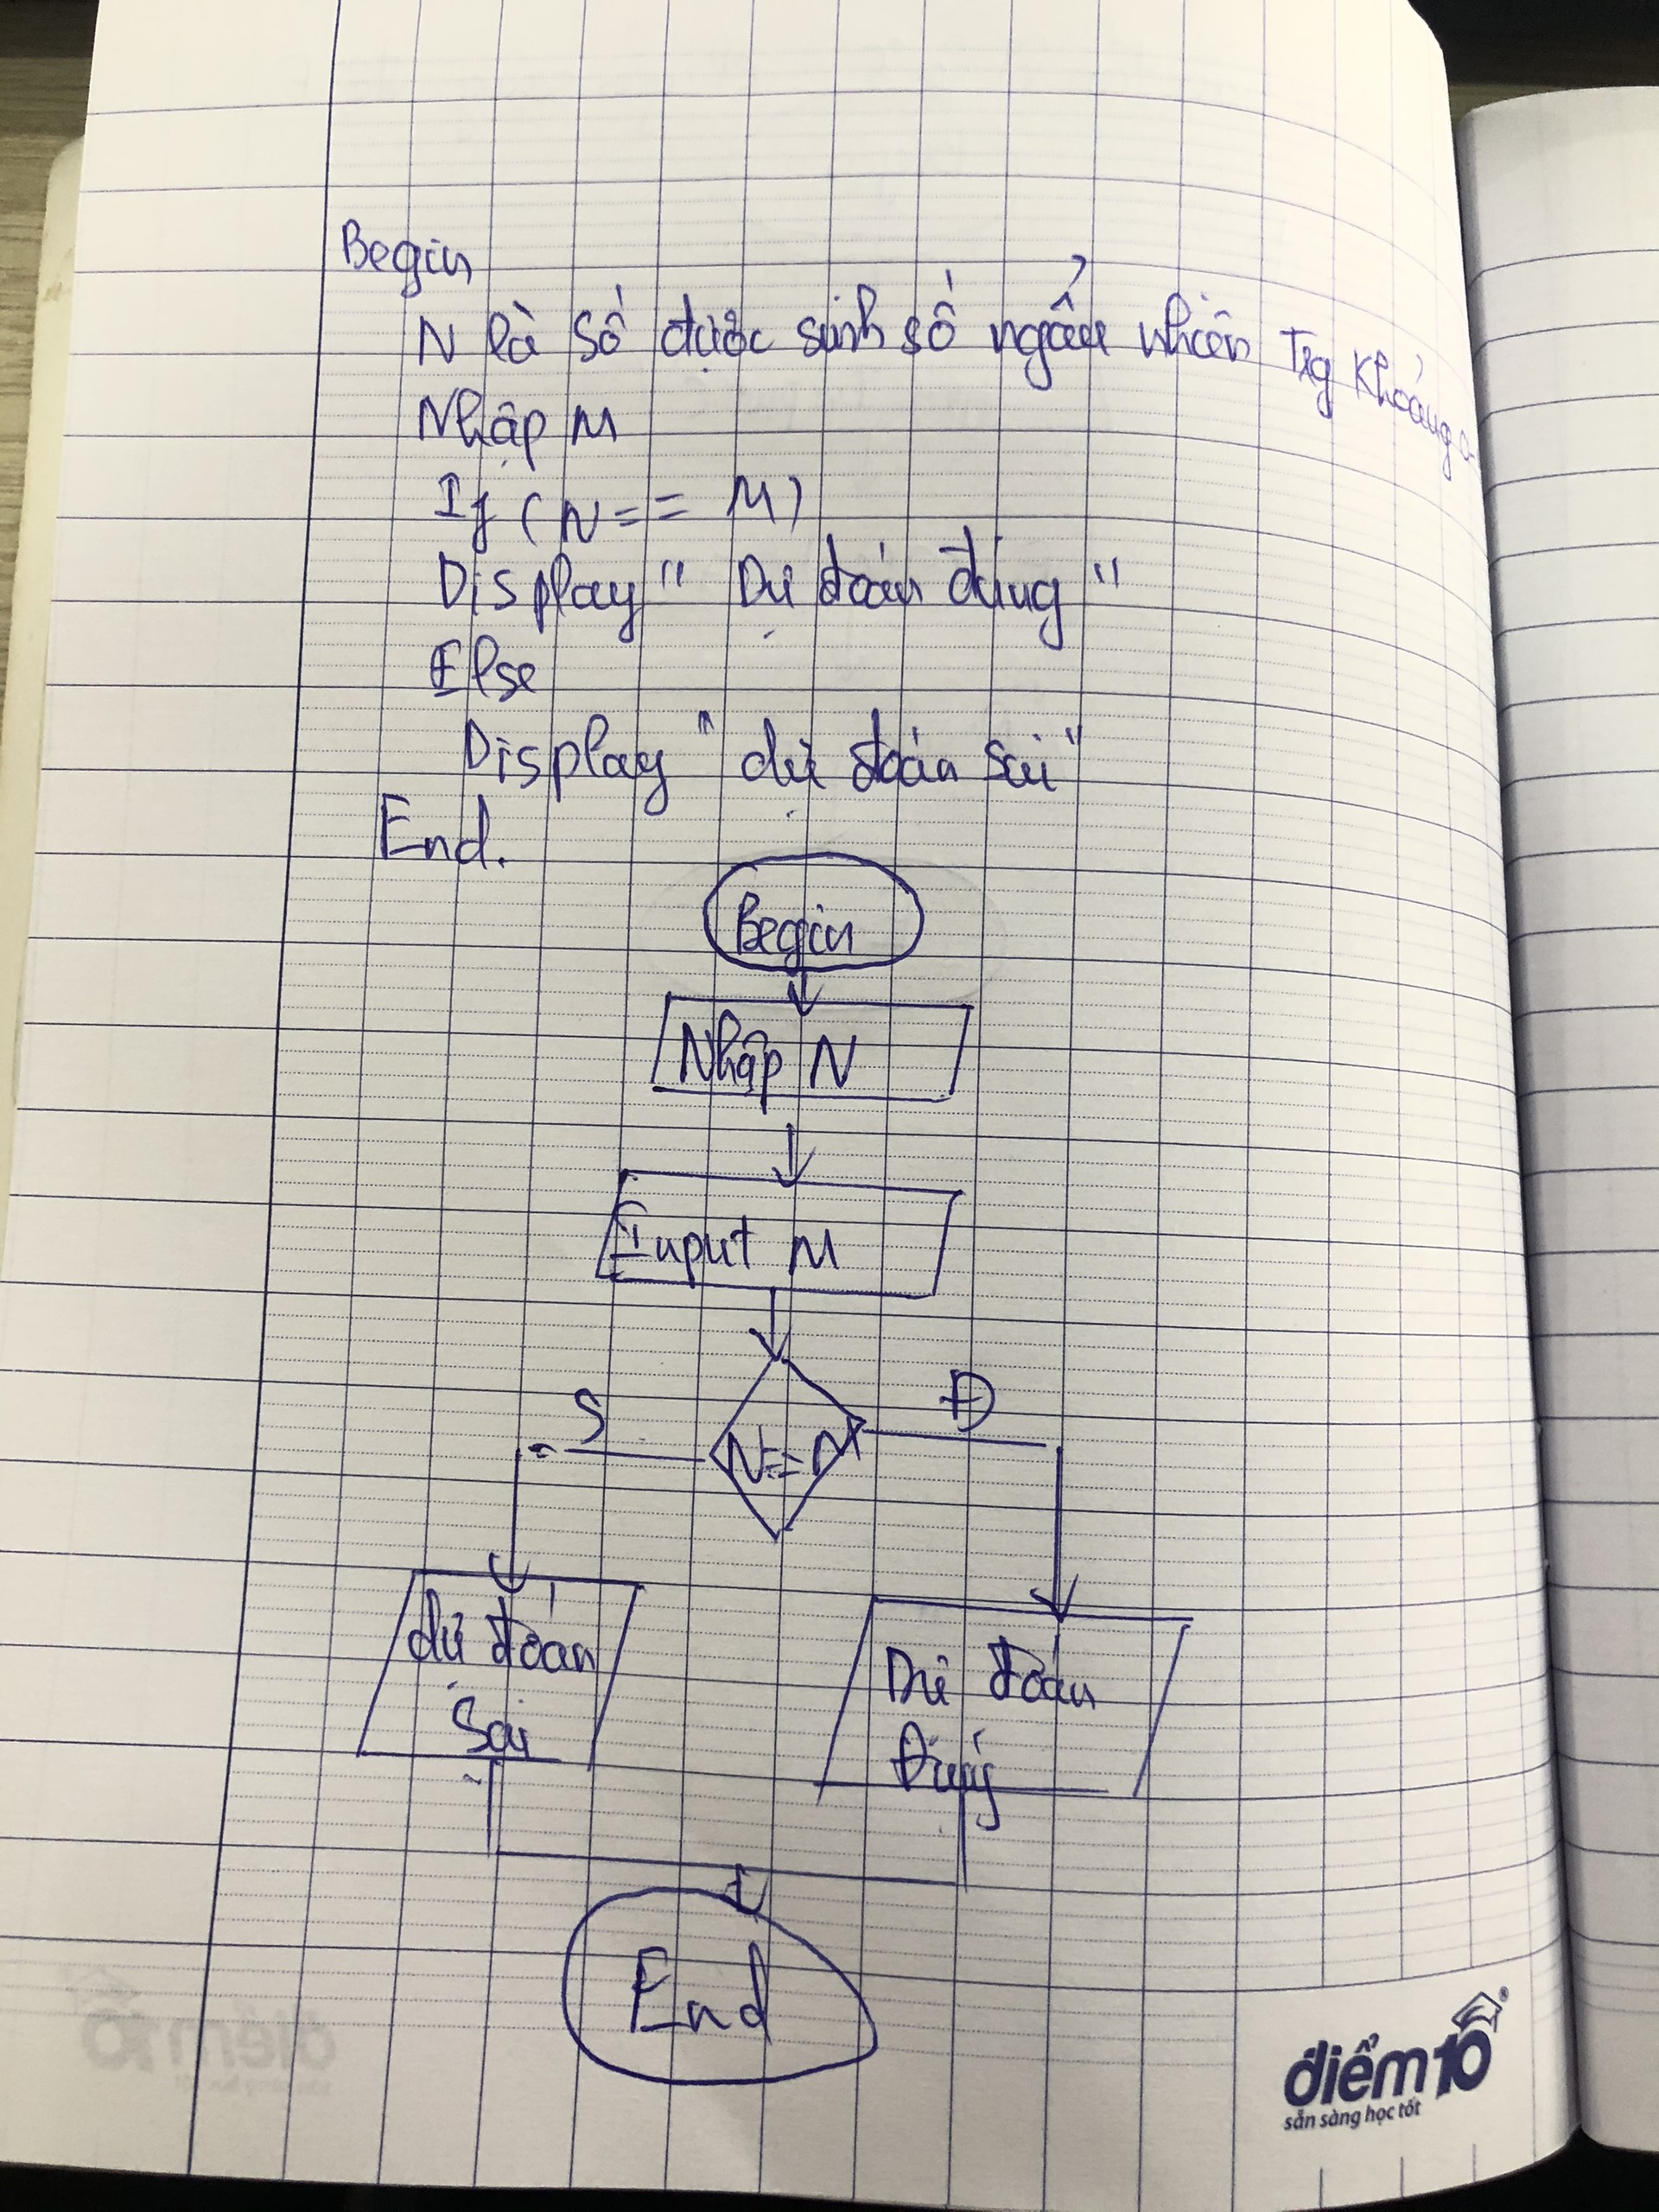 Begin
N là số được sinh số ngẫu nhiên Trg khoảng
Nhập M
If (N == M)
Display " Dự đoán đúng "
Else
Display " dự đoán sai "
End.
Begin
Nhập N
Input M
S
Đ
N==M
dự đoán
Sai
Dự đoán
Đúng
End
điểm10
sẵn sàng học tốt